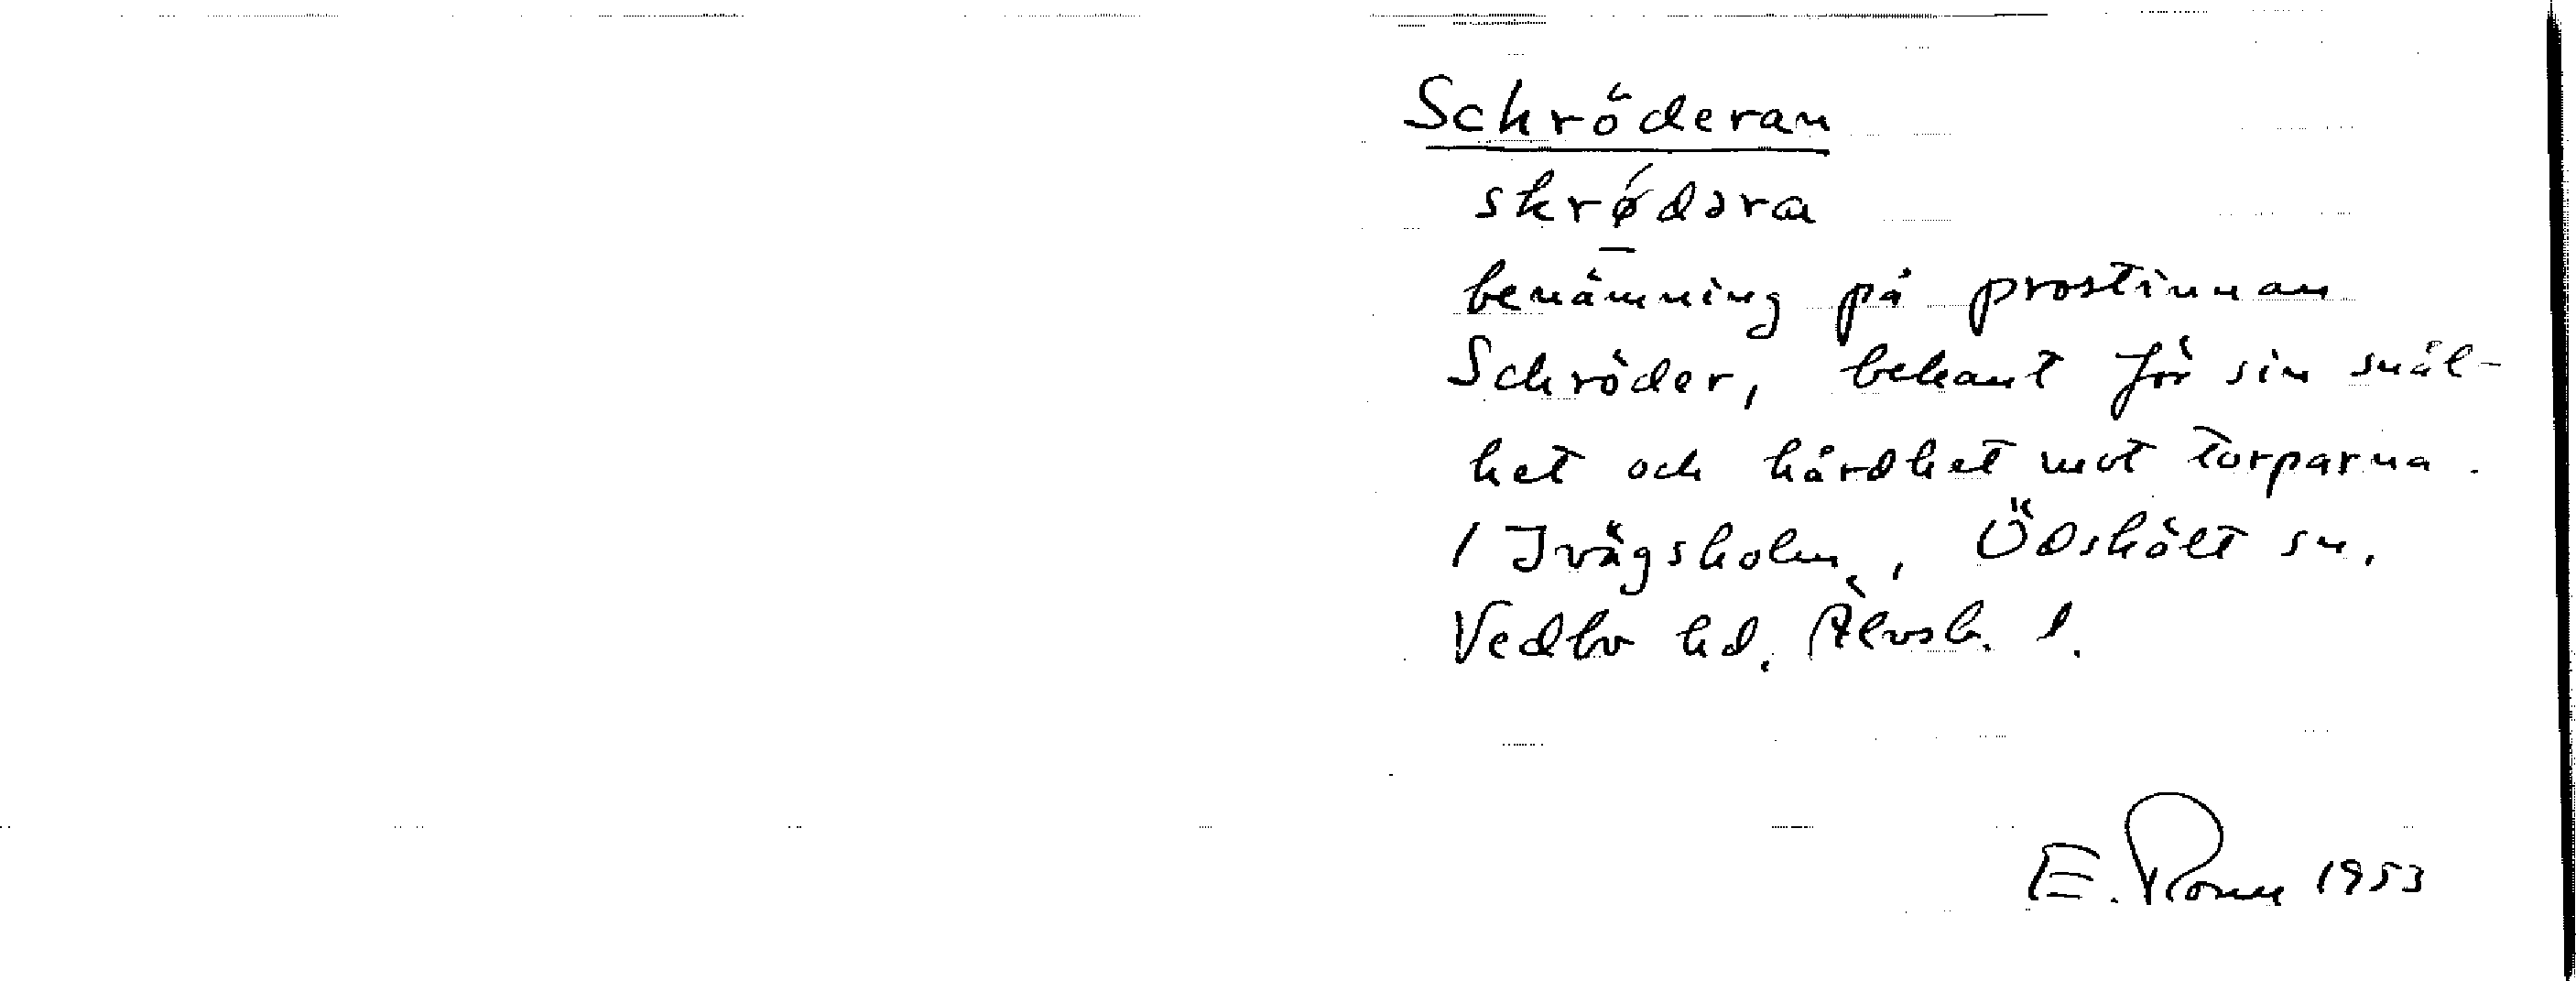 Schröderan
skrǿ̱dəra
benämning på prostinnan
Schröder, bekant för sin snål-
het och hårdhet mot torparna.
I Ivägsholm, Ödskölt sn.
Vedbo hd. Älvsb. l.
E. 1953